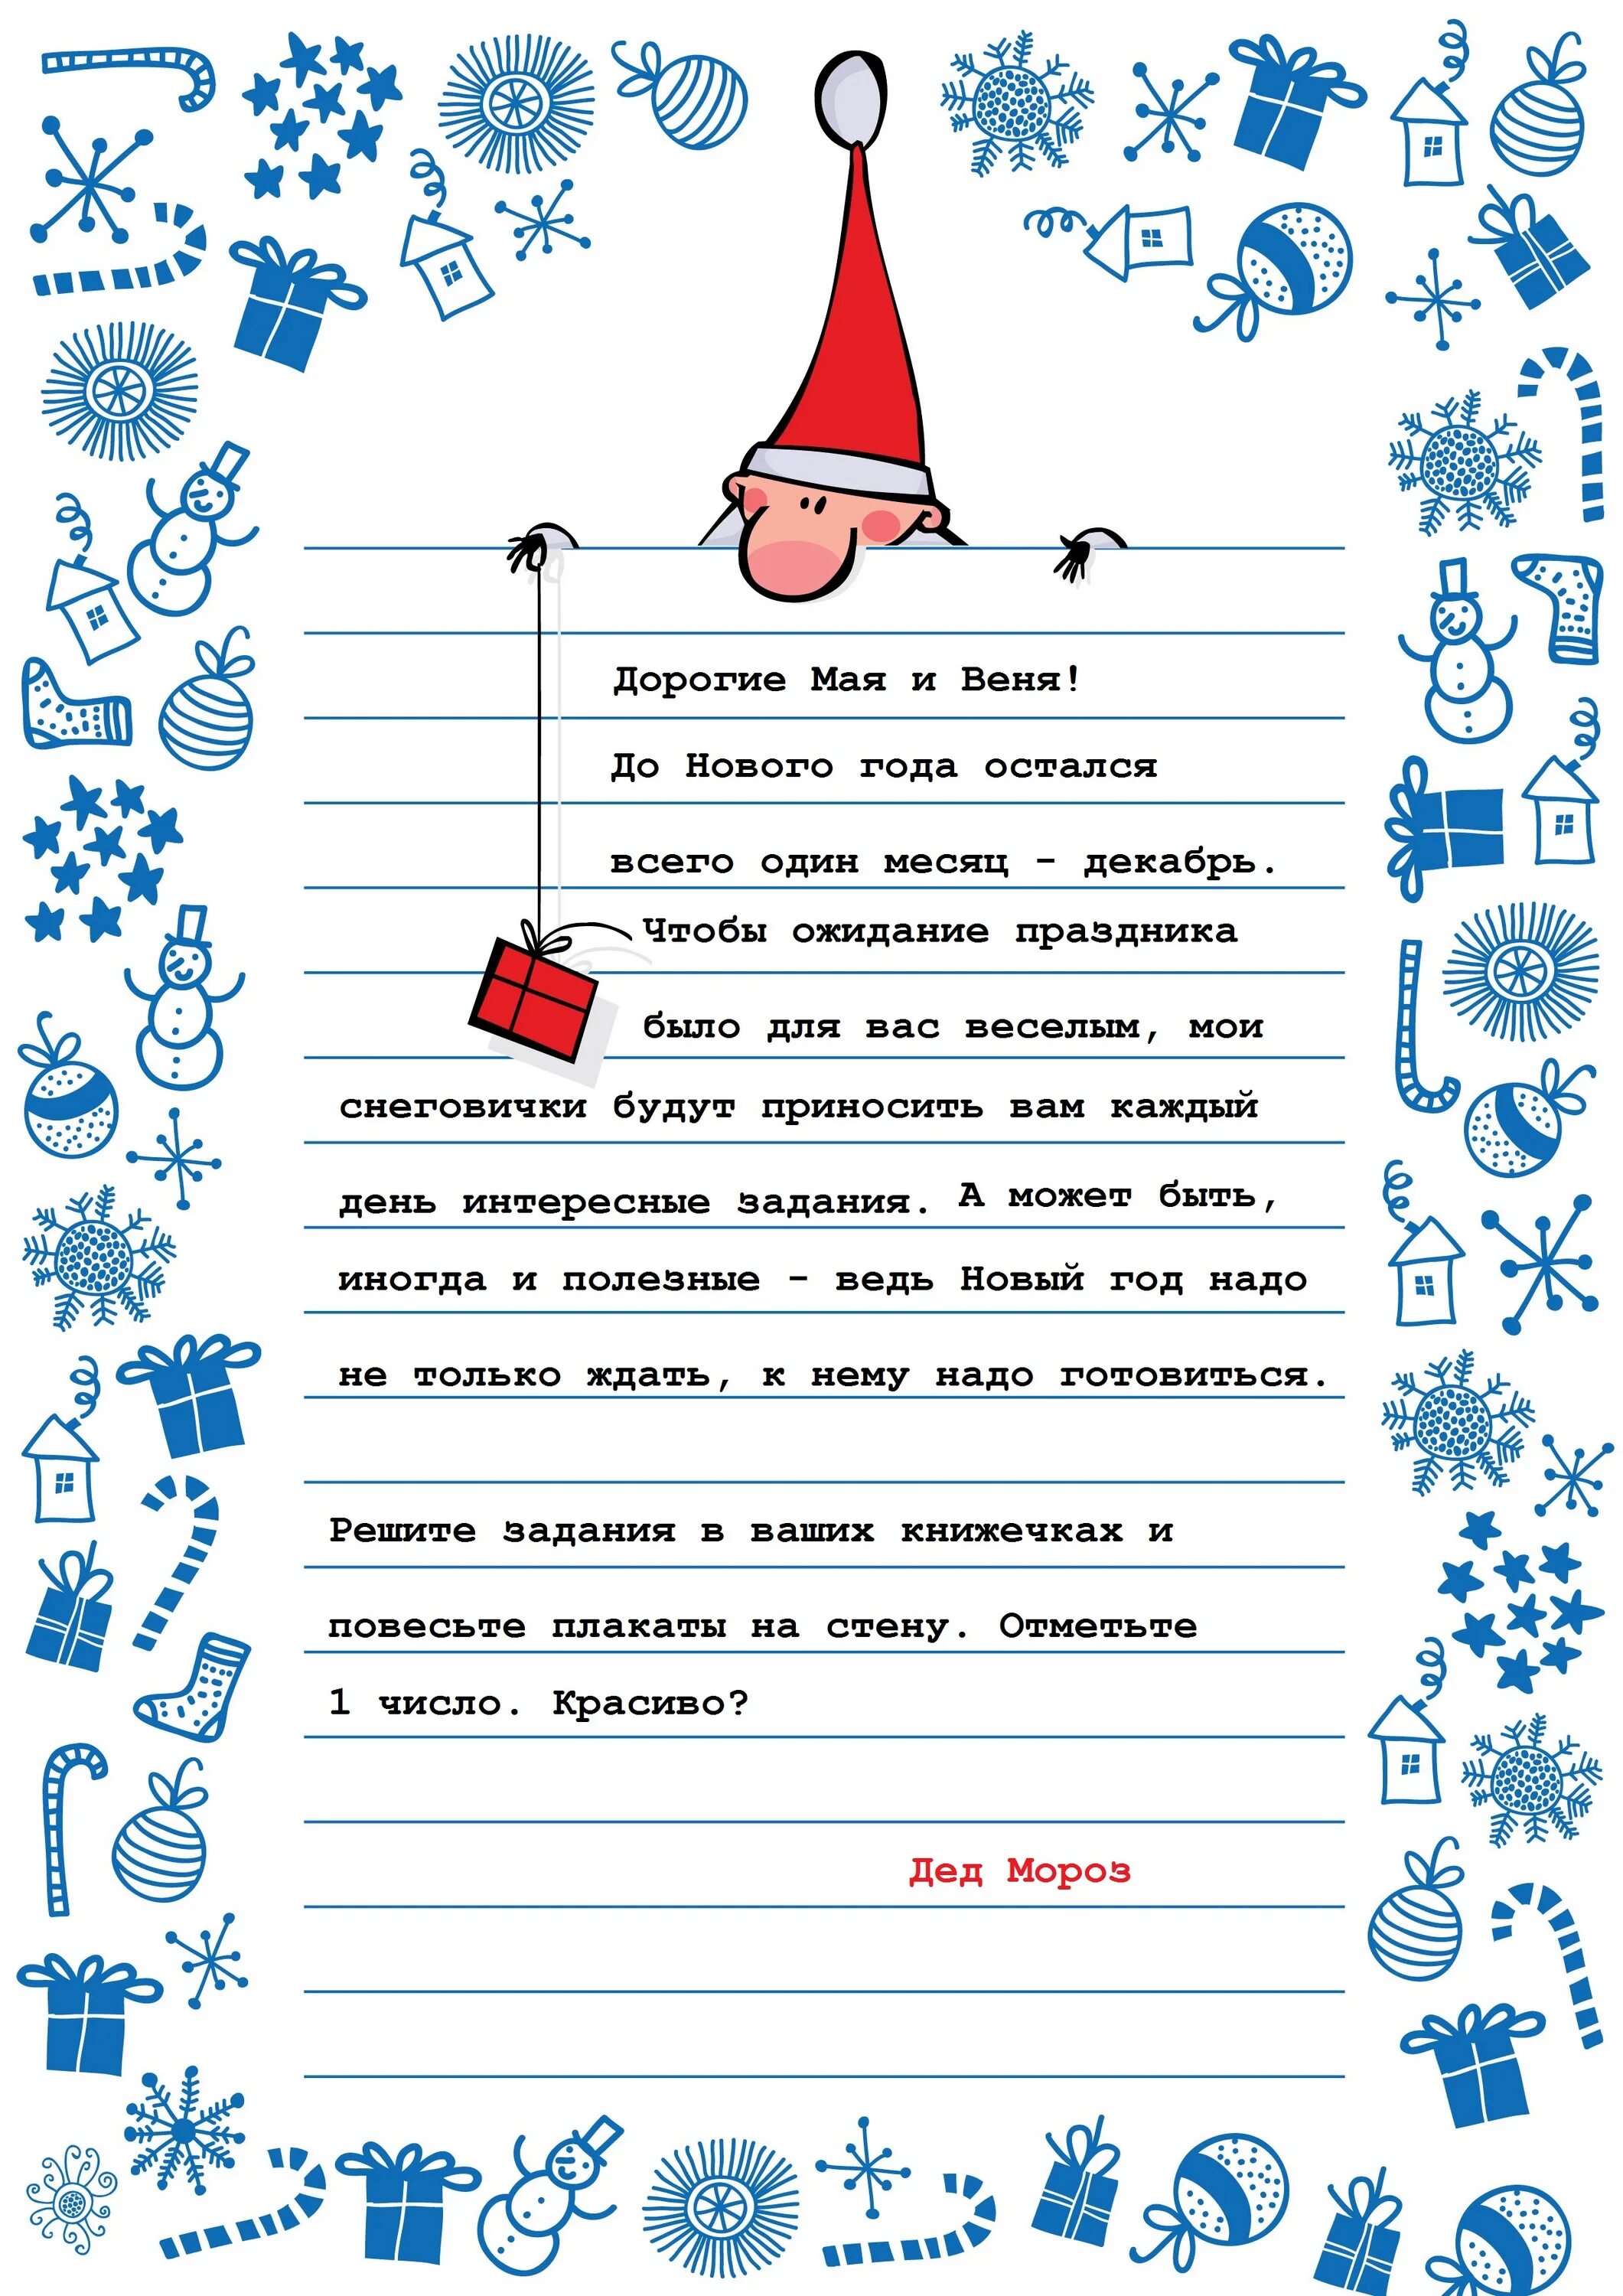 Дорогие Мая и Веня!
До Нового года остался
всего один месяц - декабрь.
Чтобы ожидание праздника
было для вас веселым, мои
снеговички будут приносить вам каждый
день интересные задания. А может быть,
иногда и полезные - ведь Новый год надо
не только ждать, к нему надо готовиться.
Решите задания в ваших книжечках и
повесьте плакаты на стену. Отметьте
1 число. Красиво?
Дед Мороз